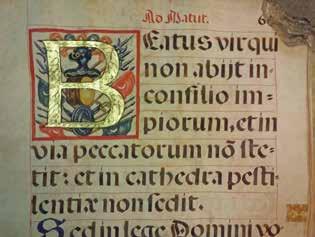 Ad Matut. 6
BEatus vir qui
non abijt in-
consilio im-
piorum, et in
via peccatorum nõ ste-
tit: et in cathedra pesti-
lentiæ non sedit.
Sed in lege Domini vo